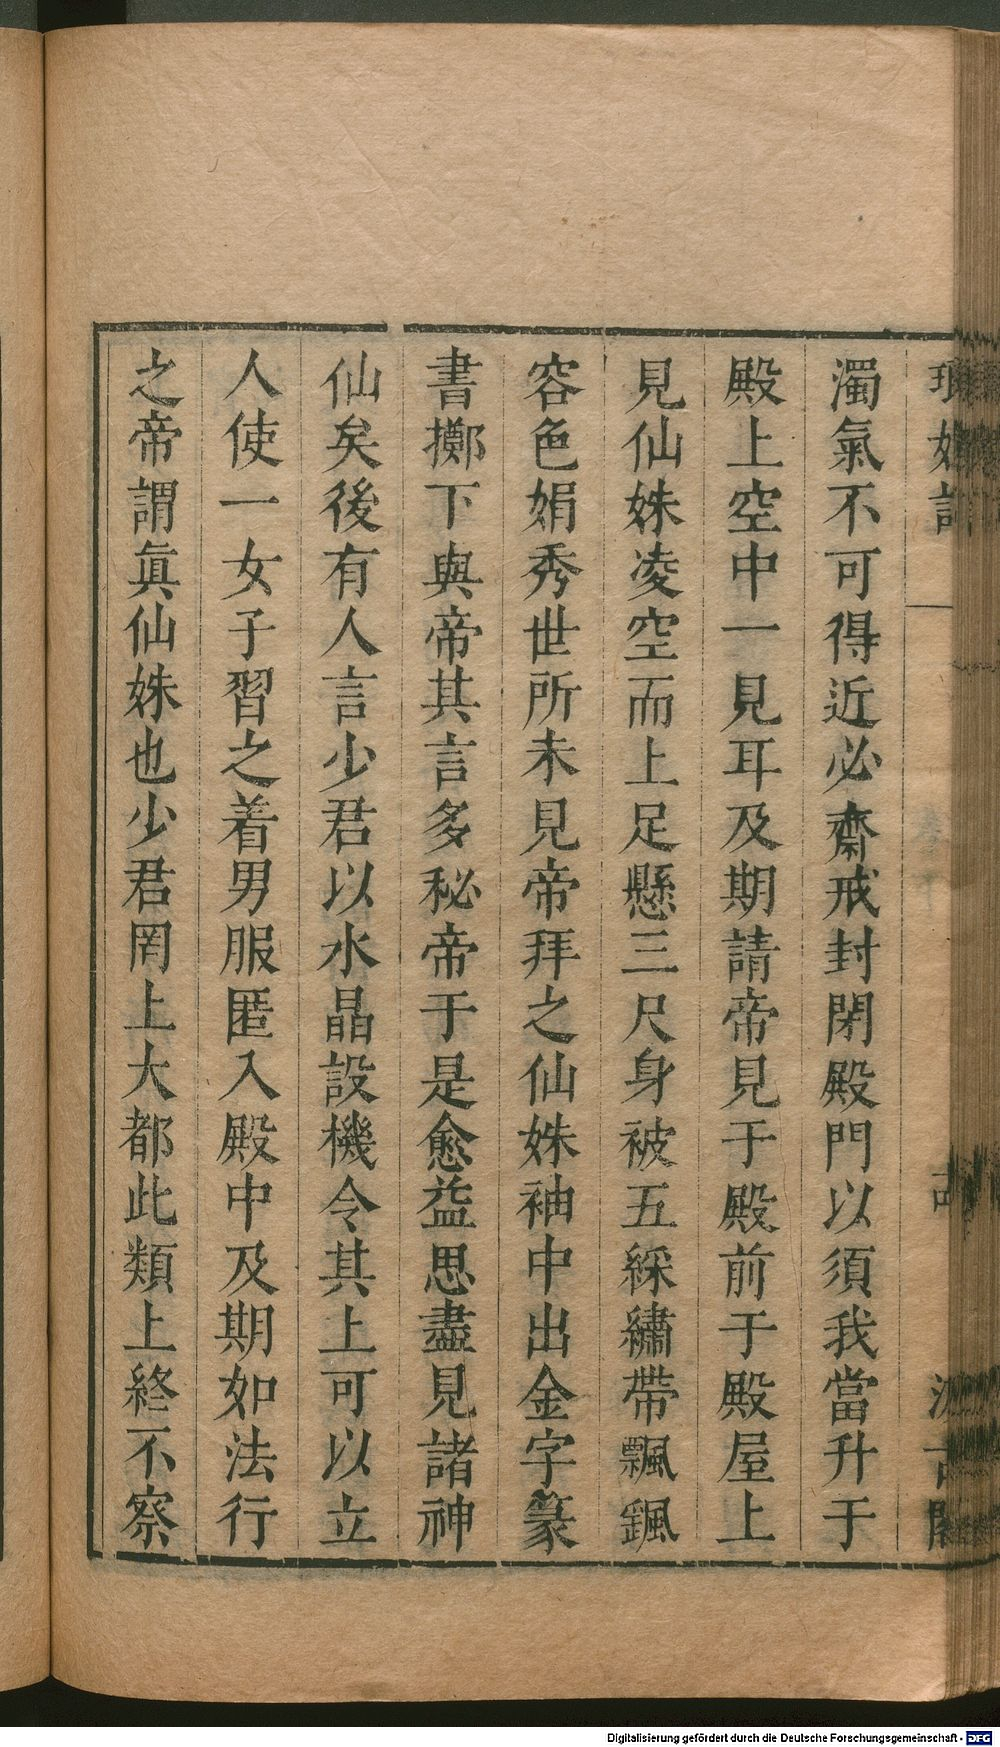 濁氣不可得近必齋戒封閉殿門以須我當升于
殿上空中一見耳及期請帝見于殿前于殿屋上
見仙姝凌空而上足懸三尺身被五綵繡帶飄颻
容色娟秀世所未見帝拜之仙姝袖中出金字篆
書擲下與帝其言多秘帝于是愈益思盡見諸神
仙矣後有人言少君以水晶設機令其上可以立
人使一女子習之着男服匿入殿中及期如法行
之帝謂眞仙姝也少君罔上大都此類上終不察
Digitalisierung gefördert durch die Deutsche Forschungsgemeinschaft - DFG